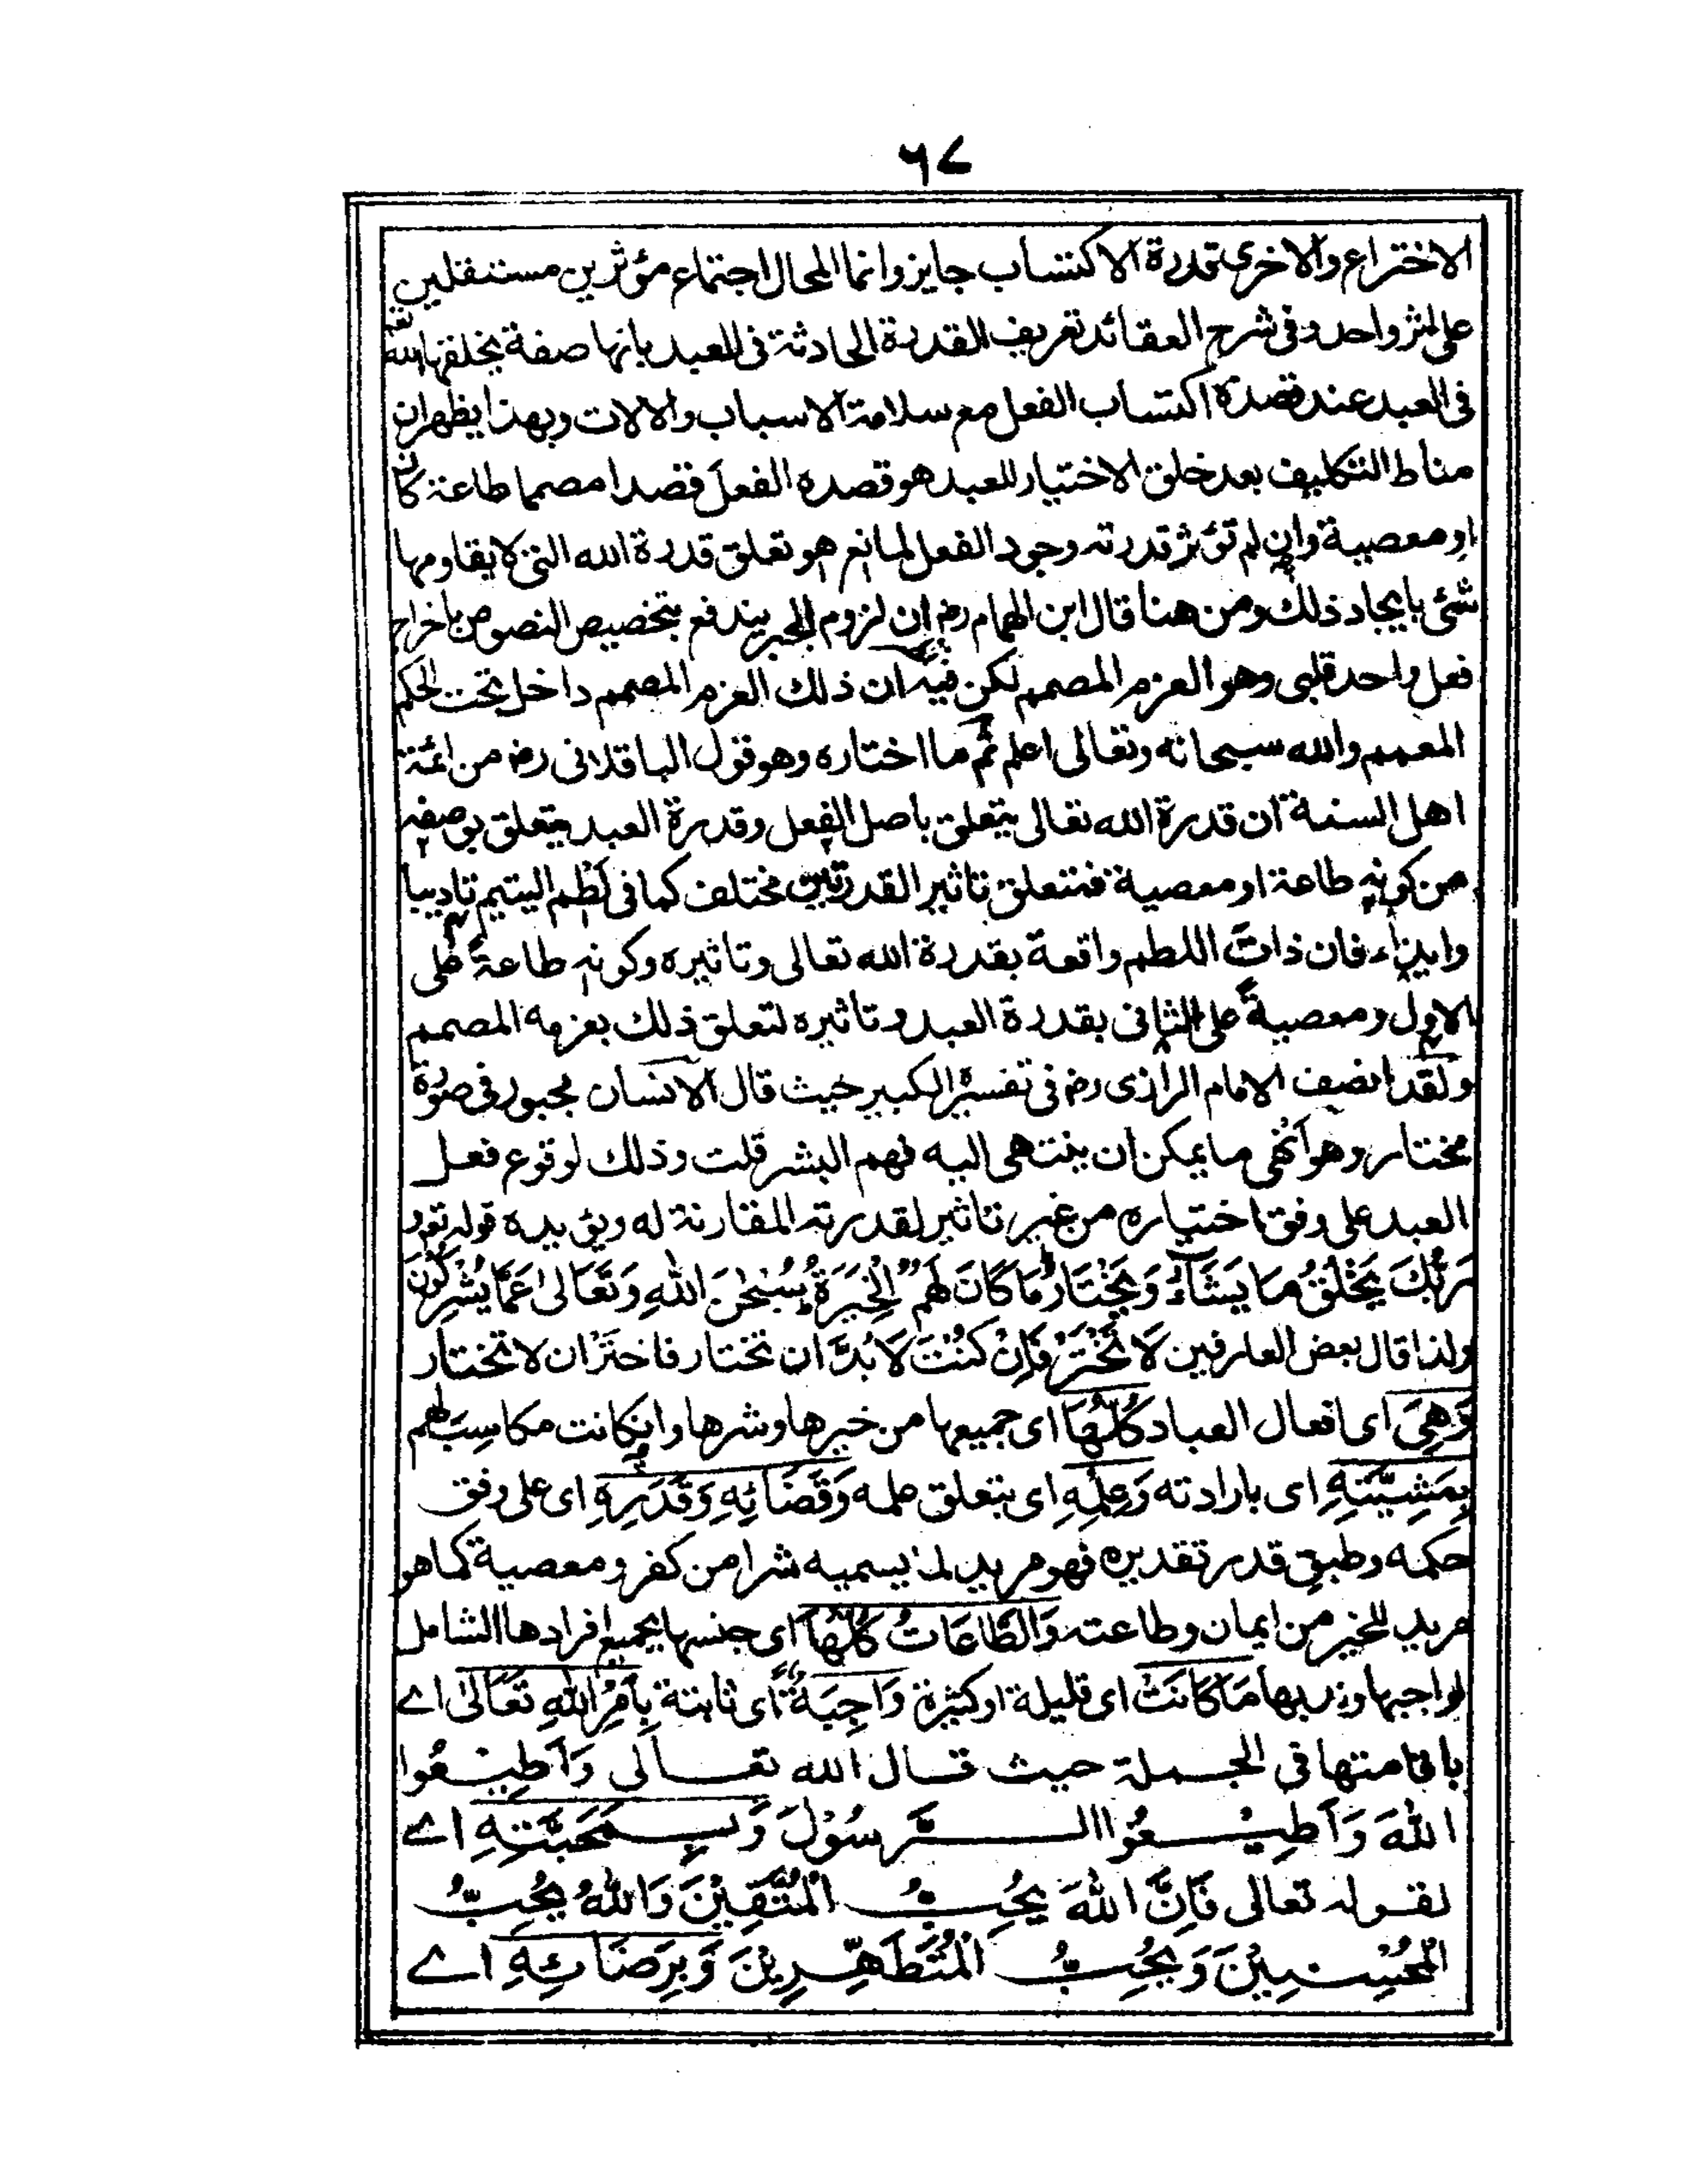 ٦٧
الاختراع والاخرى قدرة الاكتساب جايز وانما المحال اجتماع مؤثرين مستقلين
على اثر واحد وفى شرح العقائد تعريف القدرة الحادثة فى العبد بانها صفة يخلقها الله تعم
فى العبد عند قصده اكتساب الفعل مع سلامة الاسباب والالات وبهذا يظهران
مناط التكليف بعد خلق الاختيار للعبد هو قصده الفعل قصدا مصمما طاعة كان
او معصية وان لم تؤثر قدرته وجود الفعل لمانع هو تعلق قدرة الله التى لا يقاومها
شئ بايجاد ذلك ومن هنا قال ابن الهمام رض ان لزوم الجبر يندفع بتخصيص النصوص باخراج
فعل واحد قلبى وهو العزم المصمم لكن فيه ان ذلك العزم المصمم داخل تحت الحكم
المعمم والله سبحانه وتعالى اعلم ثم ما اختاره وهو قول الباقلانى رض من ائمة
اهل السنة ان قدرة الله تعالى يتعلق باصل الفعل وقدرة العبد يتعلق بوصفه
من كونه طاعة او معصية فتتعلق تاثير القدرتين مختلف كما فى لطم اليتيم تاديبا
وايذاء فان ذات اللطم واقعة بقدرة الله تعالى وتاثيره وكونه طاعة على
الاول ومعصية على الثانى بقدرة العبد وتاثيره لتعلق ذلك بعزمه المصمم
ولقد انصف الامام الرازى رض فى تفسيره الكبير حيث قال الانسان مجبور فى صورة
مختار وهو انهى ما يمكن ان ينتهى اليه فهم البشر قلت وذلك لوقوع فعل
العبد على وفق اختياره من غير تاثير لقدرته المقارنة له ويؤيده قوله تع و
رَبُّكَ يَخْلُقُ مَا يَشَآءُ وَيَخْتَارُ مَا كَانَ لَهُمُ الْخِيَرَةُ سُبْحٰنَ اللهِ وَتَعَالىٰ عَمَّا يُشْرِكُوْنَ
ولذا قال بعض العارفين لَا تَخْتَرْ فَاِنْ كُنْتَ لَا بُدَّ ان تختار فاختر ان لا تختار
وَهِيَ اى افعال العباد كُلُّهَا اى جميعها من خيرها وشرها وانكانت مكاسب لهم
بِمَشِيَّتِهِ اى بارادته وَعِلْمِهِ اى بتعلق علمه وَقَضَائِهِ وَقَدَرِهِ اى على وفق
حكمه وطبق قدر تقديره فهو مريد لما يسميه شرا من كفر ومعصية كما هو
مريد للخير من ايمان وطاعته وَالطَّاعَاتُ كُلُّهَا اى جنسها بجميع افرادها الشامل
لواجبها وندبها مَا كَانَتْ اى قليلة او كثيرة وَاجِبَةٌ اى ثابتة بِاَمْرِ اللهِ تَعَالىٰ اے
باقامتها فى الجملة حيث قال الله تعالى وَاَطِيْعُوا
اللهَ وَاَطِيْعُوا الرَّسُوْلَ وَبِمَحَبَّتِهِ اے
لقوله تعالى فَاِنَّ اللهَ يُحِبُّ الْمُتَّقِيْنَ وَاللهُ يُحِبُّ
الْمُحْسِنِيْنَ وَيُحِبُّ الْمُتَطَهِّرِيْنَ وَبِرَضَائِهِ اے